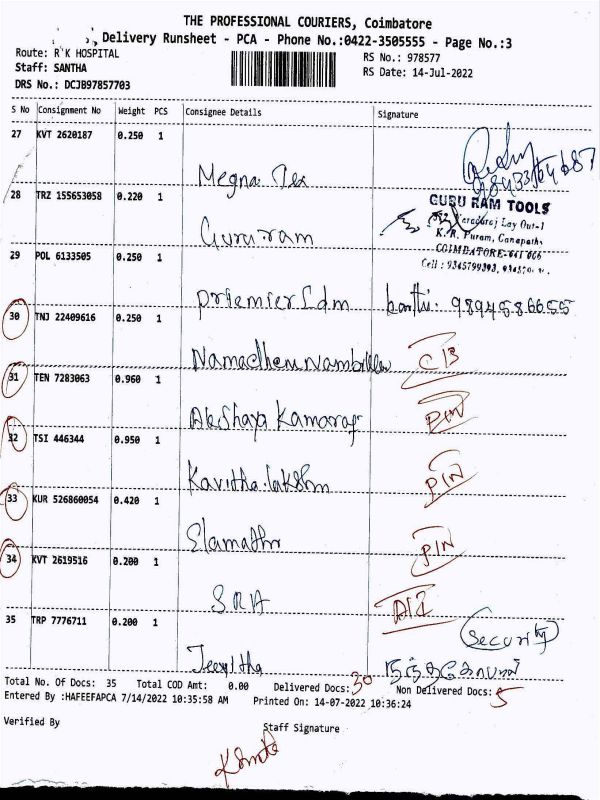 THE PROFESSIONAL COURIERS, Coimbatore
Delivery Runsheet - PCA - Phone No.:0422-3505555 - Page No.:3
Route: R K HOSPITAL
Staff: SANTHA
DRS No.: DCJB97857703
RS No.: 978577
RS Date: 14-Jul-2022
S No Consignment No Weight PCS Consignee Details Signature
27 KVT 2620187 0.250 1
Megna Tex
28 TRZ 155653058 0.220 1
GURU RAM TOOLS
Lay Out-1
Guru ram
K.R. Puram, Ganapathy
COIMBATORE-641 006
29 POL 6133505 0.250 1
Cell : 9345799393,
Premier Ldm 9894586655
30 TNJ 22409616 0.250 1
Namadhu C/B
31 TEN 7283063 0.960 1
Akshaya Kamaraj P/N
32 TSI 446344 0.950 1
Kavitha.lakshm P/N
33 KUR 526860054 0.420 1
Elamathi P/N
34 KVT 2619516 0.200 1
SRA
35 TRP 7776711 0.200 1
Security
Jeevitha நந்தகோபால்
Total No. Of Docs: 35 Total COD Amt: 0.00 Delivered Docs: 30 Non Delivered Docs: 5
Entered By :HAFEEFAPCA 7/14/2022 10:35:58 AM Printed On: 14-07-2022 10:36:24
Verified By Staff Signature